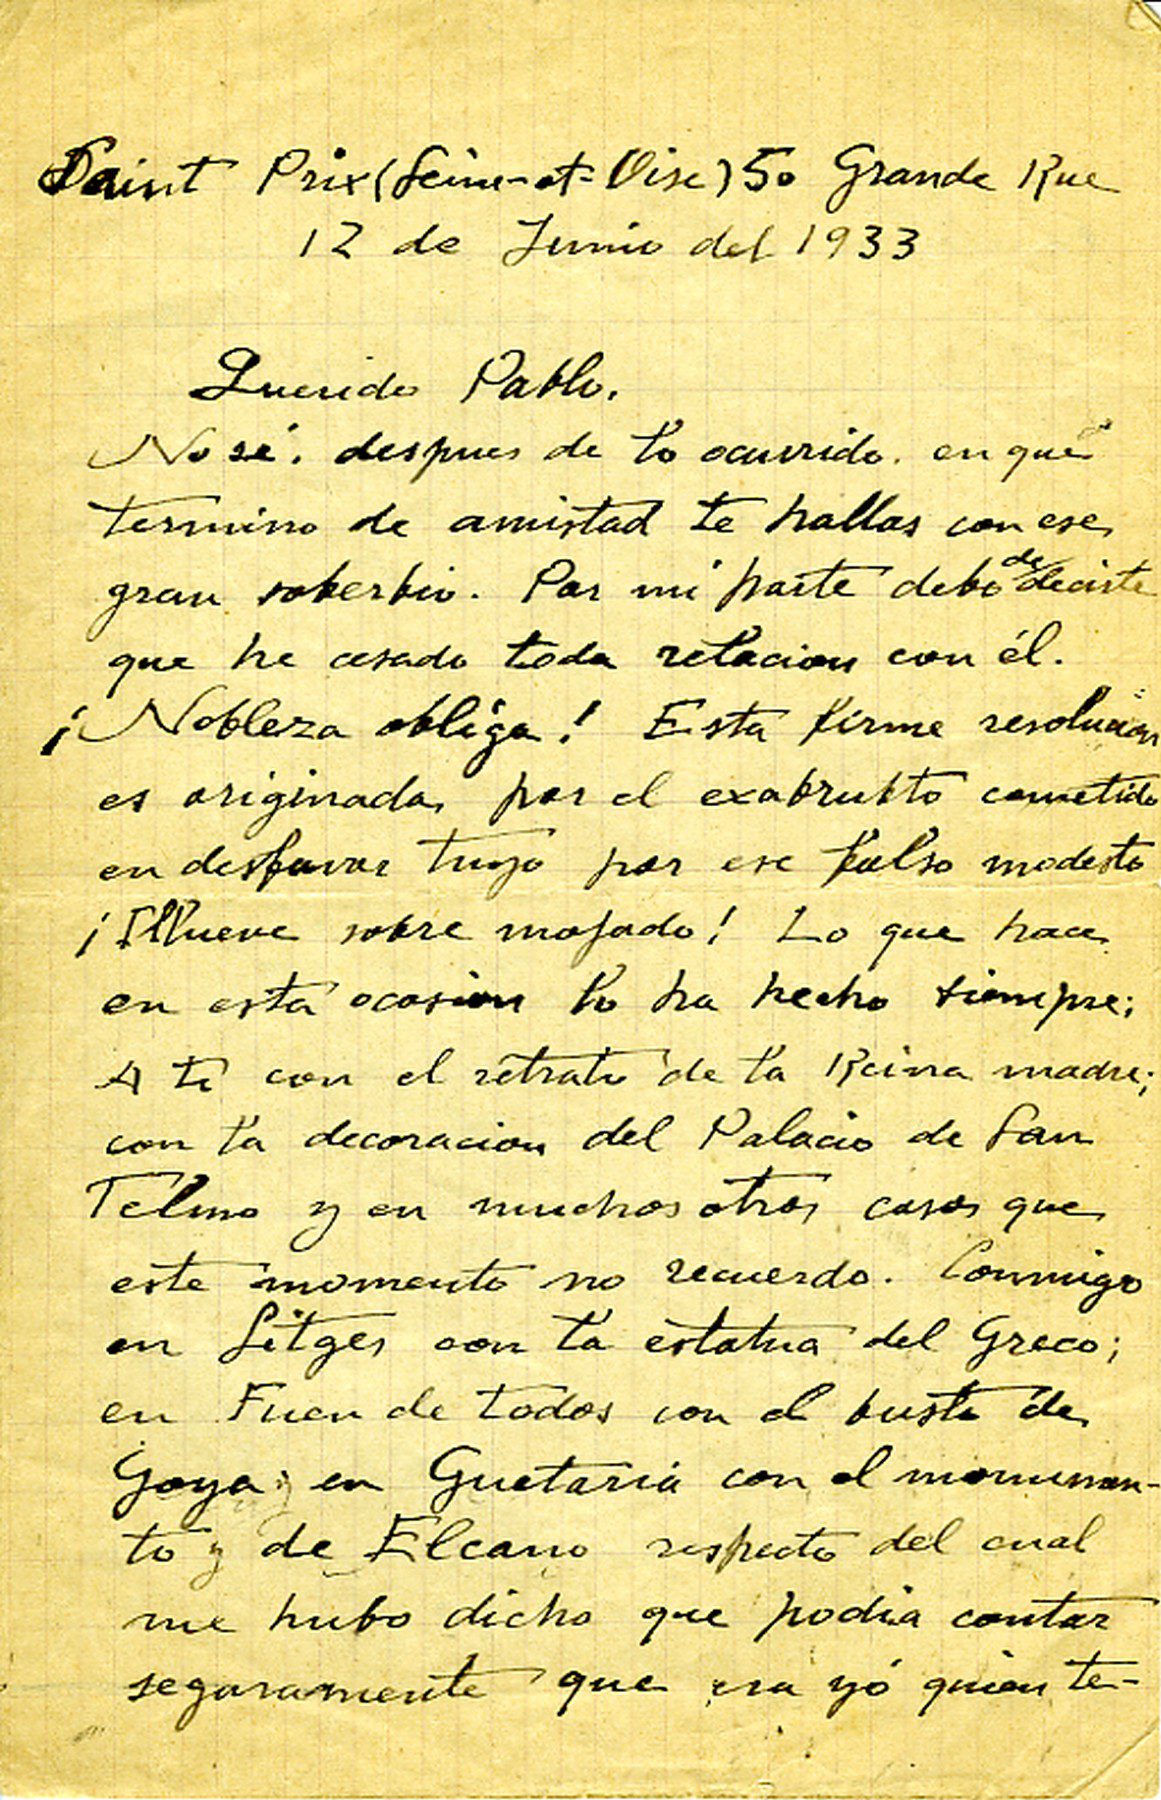 Saint Prix (Seine-et-Oise) 50 Grande Rue
12 de Junio del 1933
Querido Pablo.
No sé. despues de lo ocurrido. en qué
termino de amistad te hallas con ese
gran soberbio. Por mi parte debo de decirte
que he cesado toda relacion con él.
¡Nobleza obliga! Esta firme resolucion
es originada por el exabrukto cometido
en desfavor tuyo por ese falso modesto
¡Llueve sobre mojado! Lo que hace
en esta ocasion lo ha hecho siempre;
A ti con el retrato de la Reina madre;
con la decoracion del Palacio de San
Telmo y en muchos otros casos que
este momento no recuerdo. Conmigo
en Sitges con la estatua del Greco;
en Fuen de todos con el busto de
Goya; en Guetaria con el monumen-
to y de Elcano respecto del cual
me hubo dicho que podia contar
seguramente que era yó quien te-